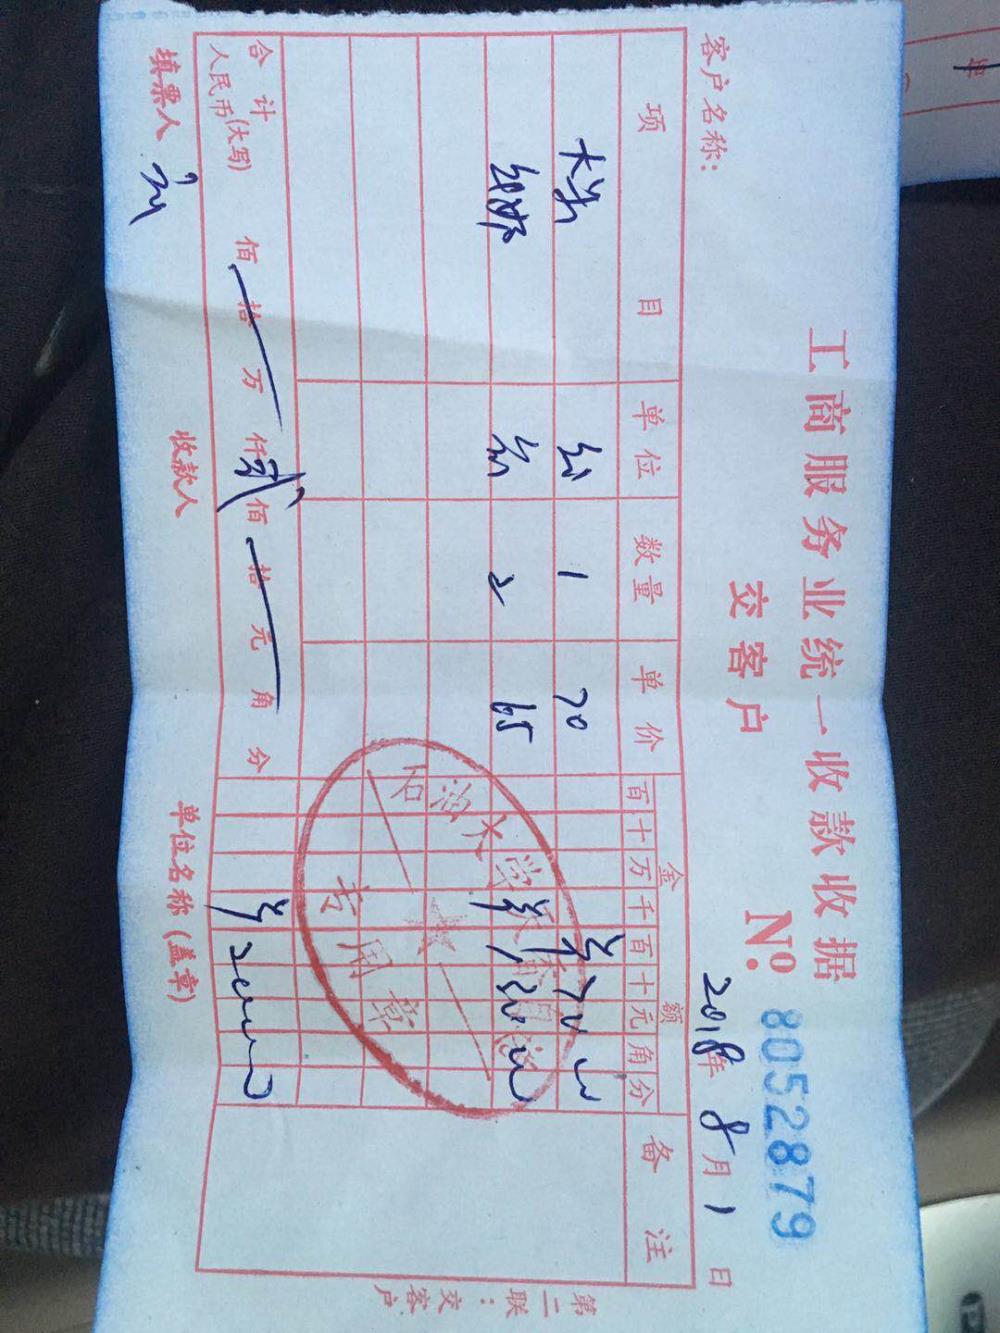 工商服务业统一收款收据
交客户
№. 8052879
客户名称:
2018年8月1日
项目 单位 数量 单价 金额 备注
百十万千百十元角分
大米 1 70 ¥7000
2 65 ¥13000
合计
人民币(大写) 佰拾万仟贰佰拾元角分 ¥20000
填票人 收款人 单位名称(盖章)
第二联:交客户
石油大学
专用章